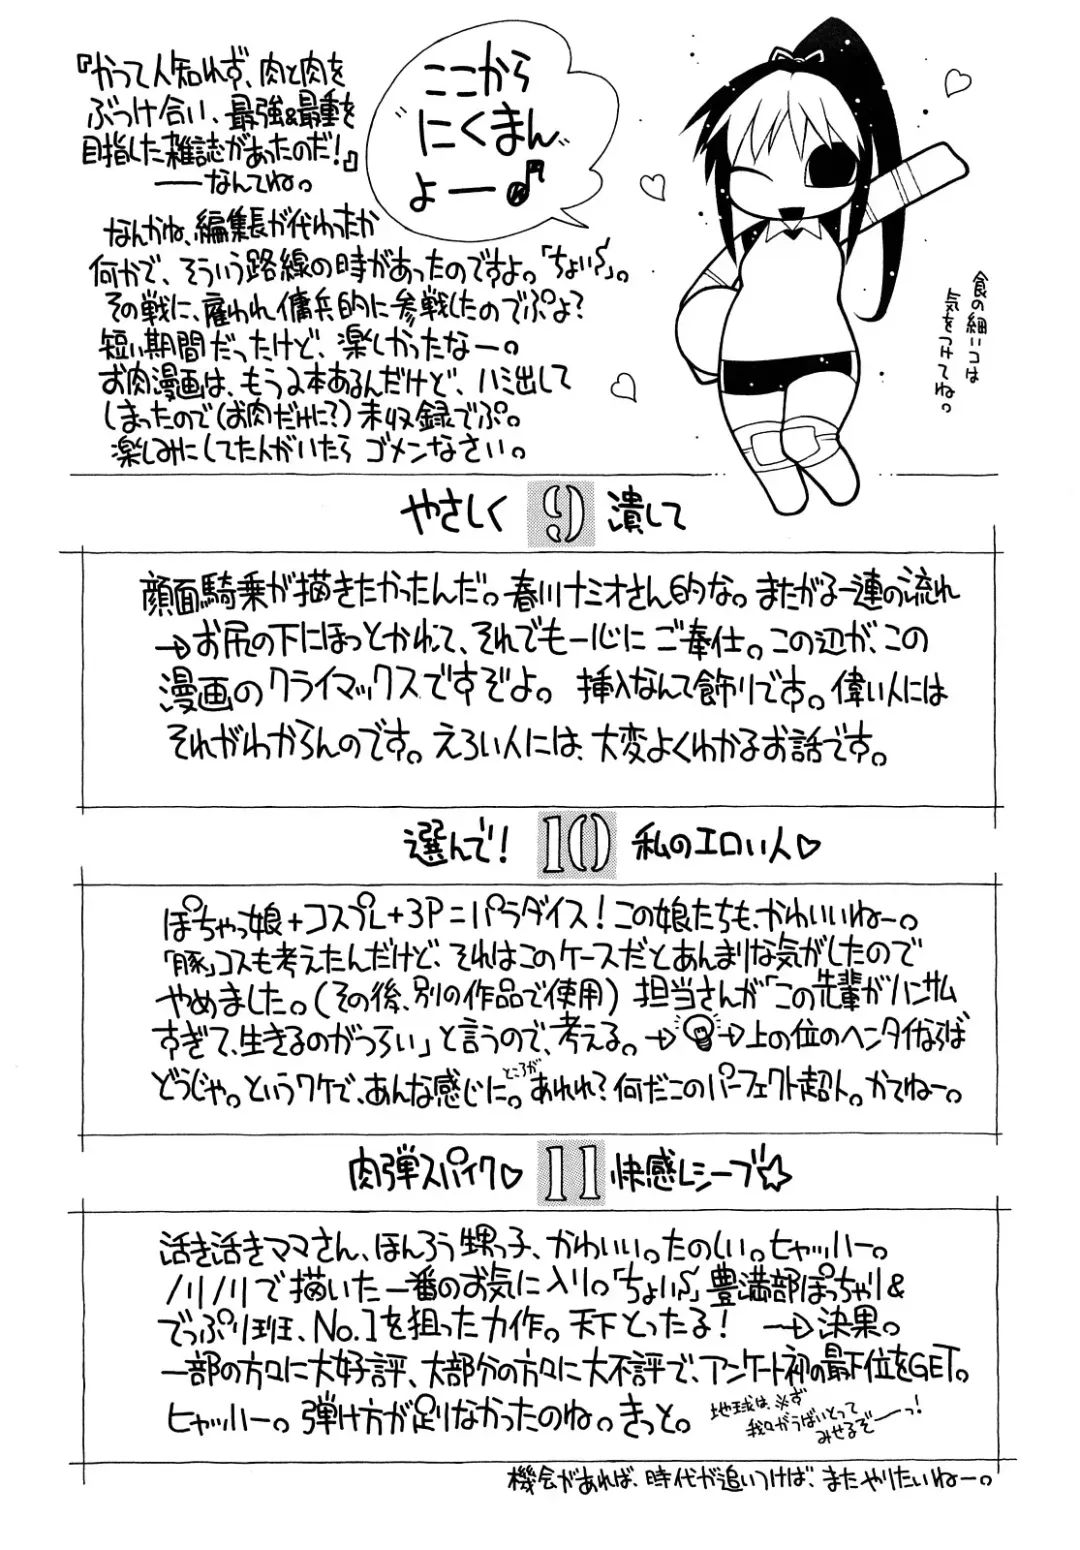 『かつて人知れず、肉と肉を
ぶつけ合い、最強&最重を
目指した雑誌があったのだ!』
――なんてね。
ここから
にくまん
よ――♪
なんかね、編集長が代わったか
何かで、そういう路線の時があったのですよ。「ちょい〜」。
その戦に、雇われ傭兵的に参戦したのでぷよ?
短い期間だったけど、楽しかったなー。
お肉漫画は、もう2本あるんだけど、ハミ出して
しまったので(お肉だけに?)未収録でぷ。
楽しみにしてた人がいたら ゴメンなさい。
食の細いコは
気をつけてね。
やさしく 9 潰して
顔面騎乗が描きたかったんだ。春川ナミオさん的な。またがる一連の流れ
→お尻の下にほっとかれて、それでも一心にご奉仕。この辺が、この
漫画のクライマックスですぞよ。 挿入なんて飾りです。偉い人には
それがわからんのです。えろい人には、大変よくわかるお話です。
選んで! 10 私のエロい人♡
ぽちゃっ娘+コスプレ+3P=パラダイス!この娘たちも、かわいいねー。
「豚」コスも考えたんだけど、それはこのケースだとあんまりな気がしたので
やめました。(その後、別の作品で使用) 担当さんが「この先輩がハンサム
すぎて、生きるのがつらい」と言うので、考える。→💡→上の位のヘンタイならば
どうじゃ。というワケで、あんな感じに。ところが あれれ?何だこのパーフェクト超人。かてねー。
肉弾スパイク♡ 11 快感レシーブ☆
活き活きママさん、ほんろう甥っ子、かわいい。たのしい。ヒャッハー。
ノリノリで描いた一番のお気に入り。「ちょい〜」豊満部ぽっちゃり&
でっぷり班、No.1を狙った力作。天下とったる! ―→決果。
一部の方々に大好評、大部分の方々に大不評で、アンケート初の最下位をGET。
ヒャッハー。弾け方が足りなかったのね。きっと。
地球は、※ず
我々がうばいとって
みせるぞ――っ!
機会があれば、時代が追いつけば、またやりたいねー。